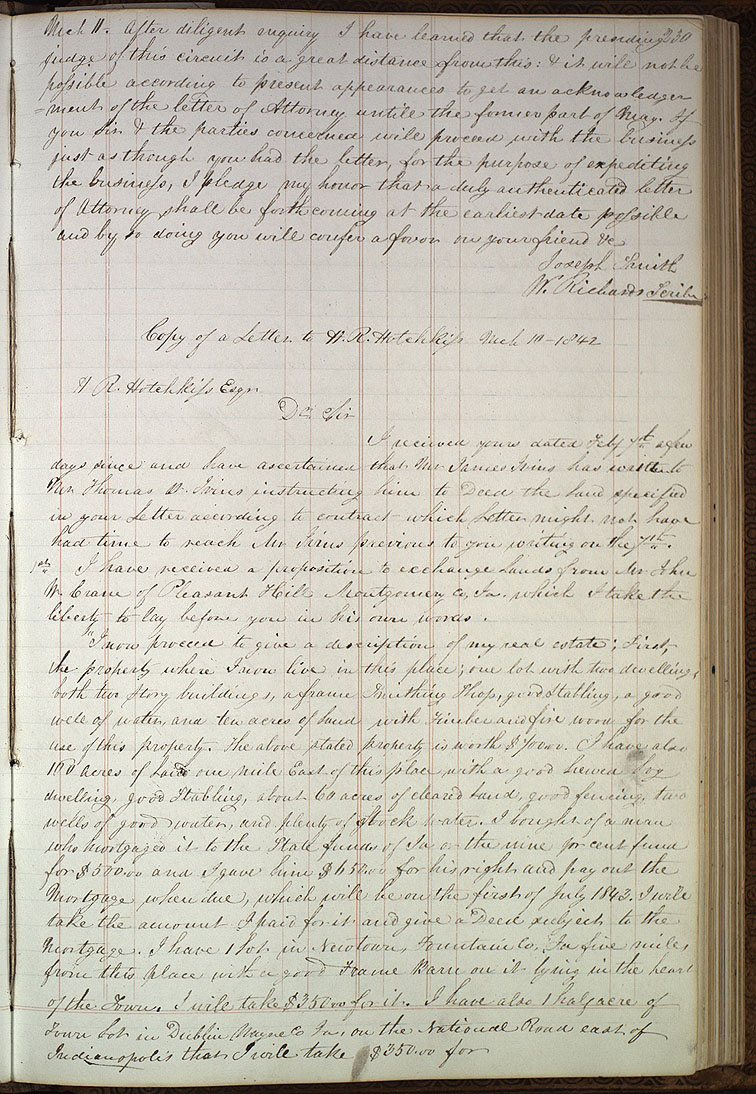 Mch 11. After diligent enquiry I have learned that the presiding 230
judge of this circuit is a great distance from this: & it will not be
possible according to present appearances to get an acknowledge
=ment of the letter of Attorney untill the former part of May. If
you Sir & the parties concerned will proceed with the business
just as though you had the letter, for the purpose of expediting
the business, I pledge my honor that a duly authenticated letter
of Attorney shall be forthcoming at the earliest date possible
and by so doing you will confer a favor on your friend &c
Joseph Smith
W. Richards Scribe
Copy of a Letter to H. R. Hotchkiss Mch 10 - 1842
H R. Hotchkiss Esqr
Dr Sir
I received yours dated Feby 7th a few
days since and have ascertained that Mr James Ivins has written to
Mr Thomas W. Ivins instructing him to Deed the Land specified
in your Letter according to contract which Letter might not have
had time to reach Mr Ivins previous to you writing on the 7th.
1st I have received a proposition to exchange Lands from Mr John
W. Crane of Pleasant Hill Montgomery Co, Ia. which I take the
liberty to lay before you in his own words.
"I now proceed to give a description of my real estate; First,
the property where I now live in this place; one lot with two dwellings
both two story buildings, a frame Smithing Shop, good Stabling, a good
well of water, and ten acres of Land with Timber and fire wood for the
use of this property. The above stated property is worth $
I have also
100 acres of Land one mile East of this place with a good hewed Log
dwelling, good Stabling, about 60 acres of cleared Land, good fencing, two
wells of good water, and plenty of Stock water. I bought of a man
who mortgaged it to the State funds of Ia or the nine per cent fund
for $500.00 and I gave him $650.00 for his right and pay out the
Mortgage when due, which will be on the first of July 1843. I will
take the amount I paid for it and give a Deed subject to the
Mortgage. I have 1 lot in Newtown, Fountain Co, Ia five miles
from this place with a good Frame Barn on it lying in the heart
of the Town. I will take $350.00 for it. I have also 1 half acre of
Town Lot in Dublin Wayne Co Ia, on the National Road east of
Indianopolis that I will take $350.00 for